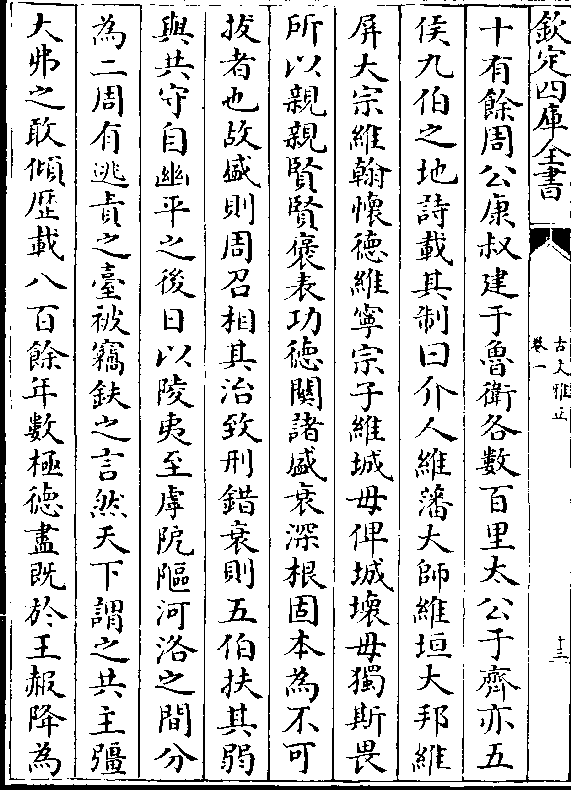 欽定四庫全書
古文雅正
卷一
十三
十有餘周公康叔建于魯衛各數百里太公于齊亦五
侯九伯之地詩載其制曰介人維藩大師維垣大邦維
屏大宗維翰懷德維寧宗子維城毋俾城壞毋獨斯畏
所以親親賢賢褒表功徳闗諸盛衰深根固本為不可
拔者也故盛則周召相其治致刑錯衰則五伯扶其弱
與共守自幽平之後日以陵夷至虖阨䧢河洛之間分
為二周有逃責之臺被竊鈇之言然天下謂之共主彊
大弗之敢傾歴載八百餘年數極徳盡既於王赧降為